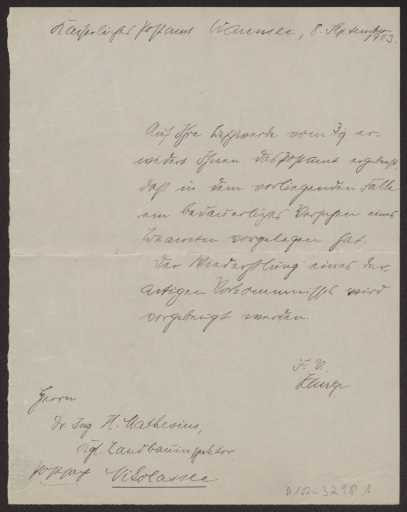 Kaiserliches Postamt Wannsee, 8. September
1913.
Auf Ihre Beschwerde vom 7/9 er-
widert Ihnen das Postamt ergebenst,
daß in dem vorliegenden Falle
ein bedauerliches Versehen eines
Beamten vorgelegen hat.
Der Wiederholung eines der-
artigen Vorkommnisses wird
vorgebeugt werden.
I. V.
Herrn
Dr Ing H. Muthesius,
Kgl. Landbauinspektor
Nikolassee